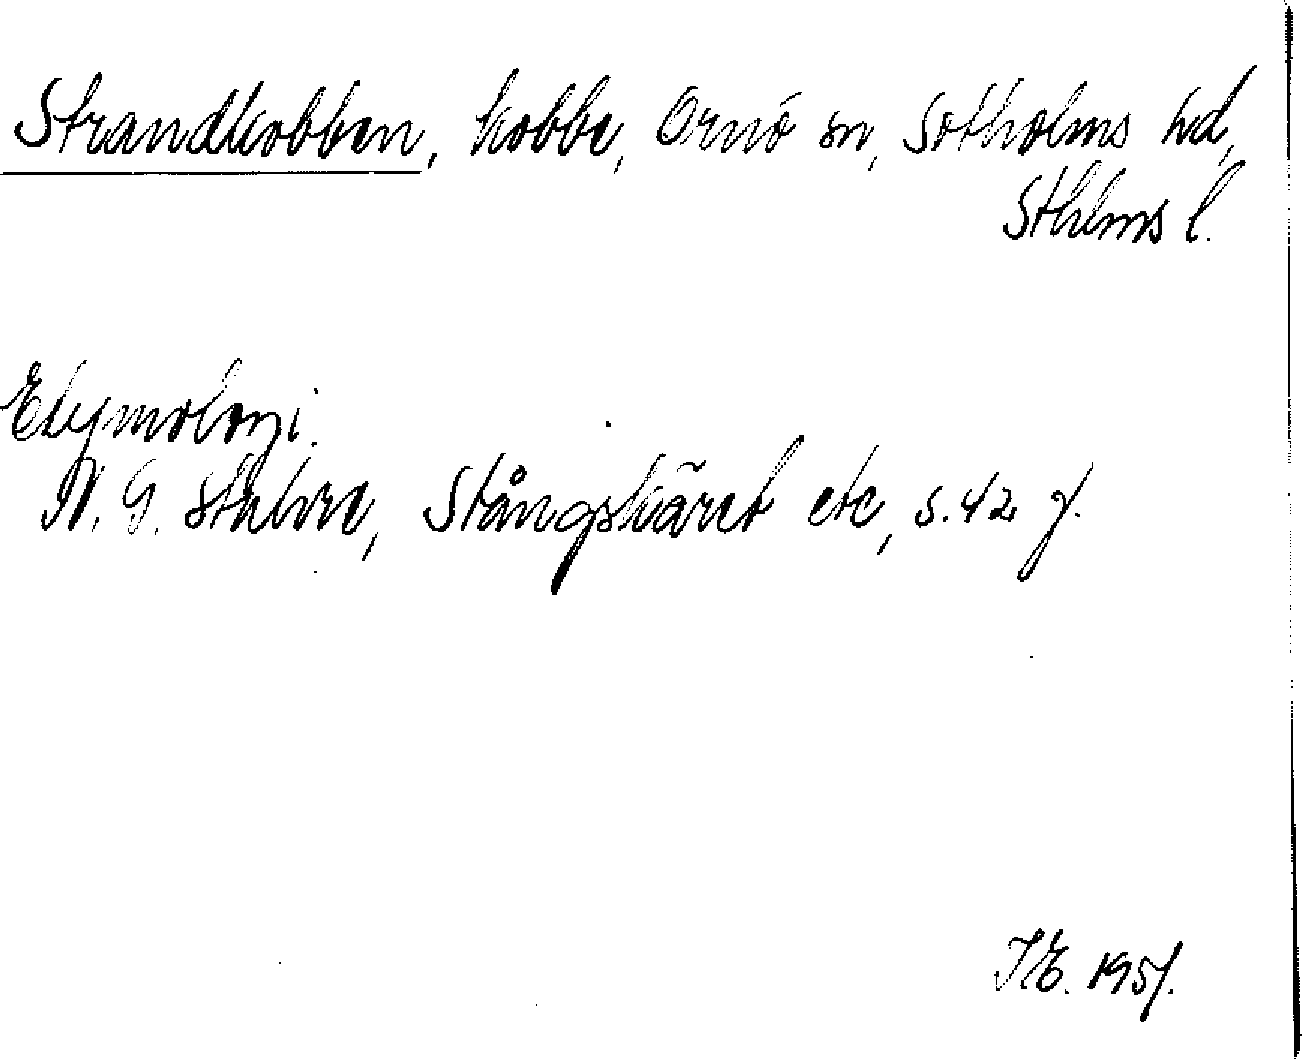 Strandkobben, kobbe, Ornö sn, Sotholms hd,
Sthlms l.
Etymologi.
N. G. Stahre, Stångskäret etc, s. 42 f.
1957.